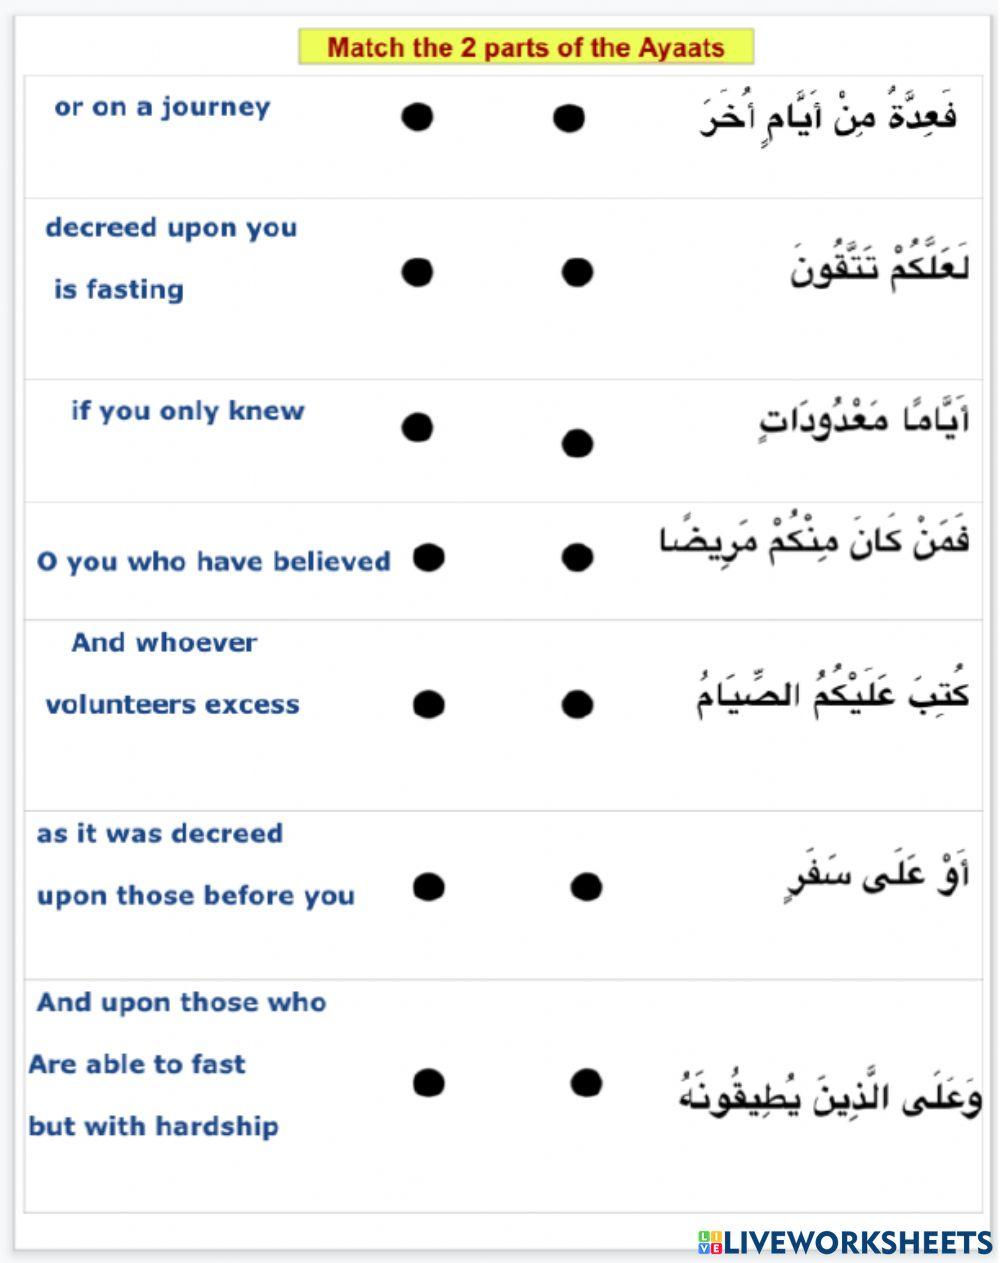 Match the 2 parts of the Ayaats
or on a journey
فَعِدَّةٌ مِنْ أَيَّامٍ أُخَرَ
decreed upon you
is fasting
لَعَلَّكُمْ تَتَّقُونَ
if you only knew
أَيَّامًا مَعْدُودَاتٍ
O you who have believed
فَمَنْ كَانَ مِنْكُمْ مَرِيضًا
And whoever
volunteers excess
كُتِبَ عَلَيْكُمُ الصِّيَامُ
as it was decreed
upon those before you
أَوْ عَلَى سَفَرٍ
And upon those who
Are able to fast
but with hardship
وَعَلَى الَّذِينَ يُطِيقُونَهُ
LIVE LIVEWORKSHEETS